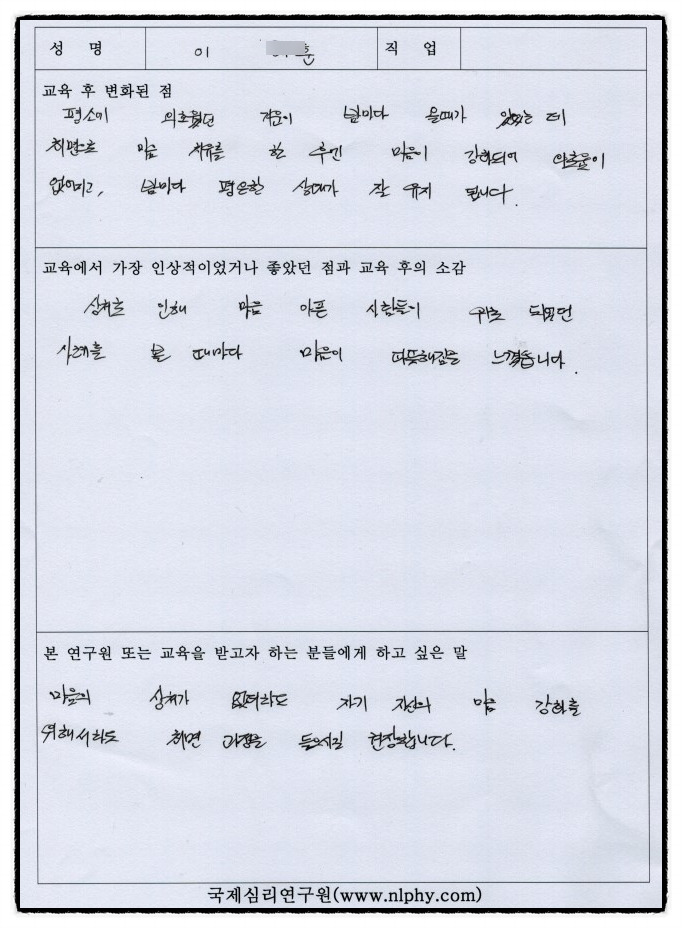 성 명 이 훈 직 업
교육 후 변화된 점
평소에 외로웠던 마음이 밤마다 올때가 있었는데
최면으로 마음 치유를 한 후엔 마음이 강화되어 외로움이
없어지고, 밤마다 평온한 상태가 잘 유지 됩니다.
교육에서 가장 인상적이었거나 좋았던 점과 교육 후의 소감
상처로 인해 마음 아픈 사람들이 위로 되었던
사례를 볼 때마다 마음이 따뜻해짐을 느꼈습니다.
본 연구원 또는 교육을 받고자 하는 분들에게 하고 싶은 말
마음의 상처가 없더라도 자기 자신의 마음 강화를
위해서라도 최면 과정을 들으시길 권장합니다.
국제심리연구원(www.nlphy.com)